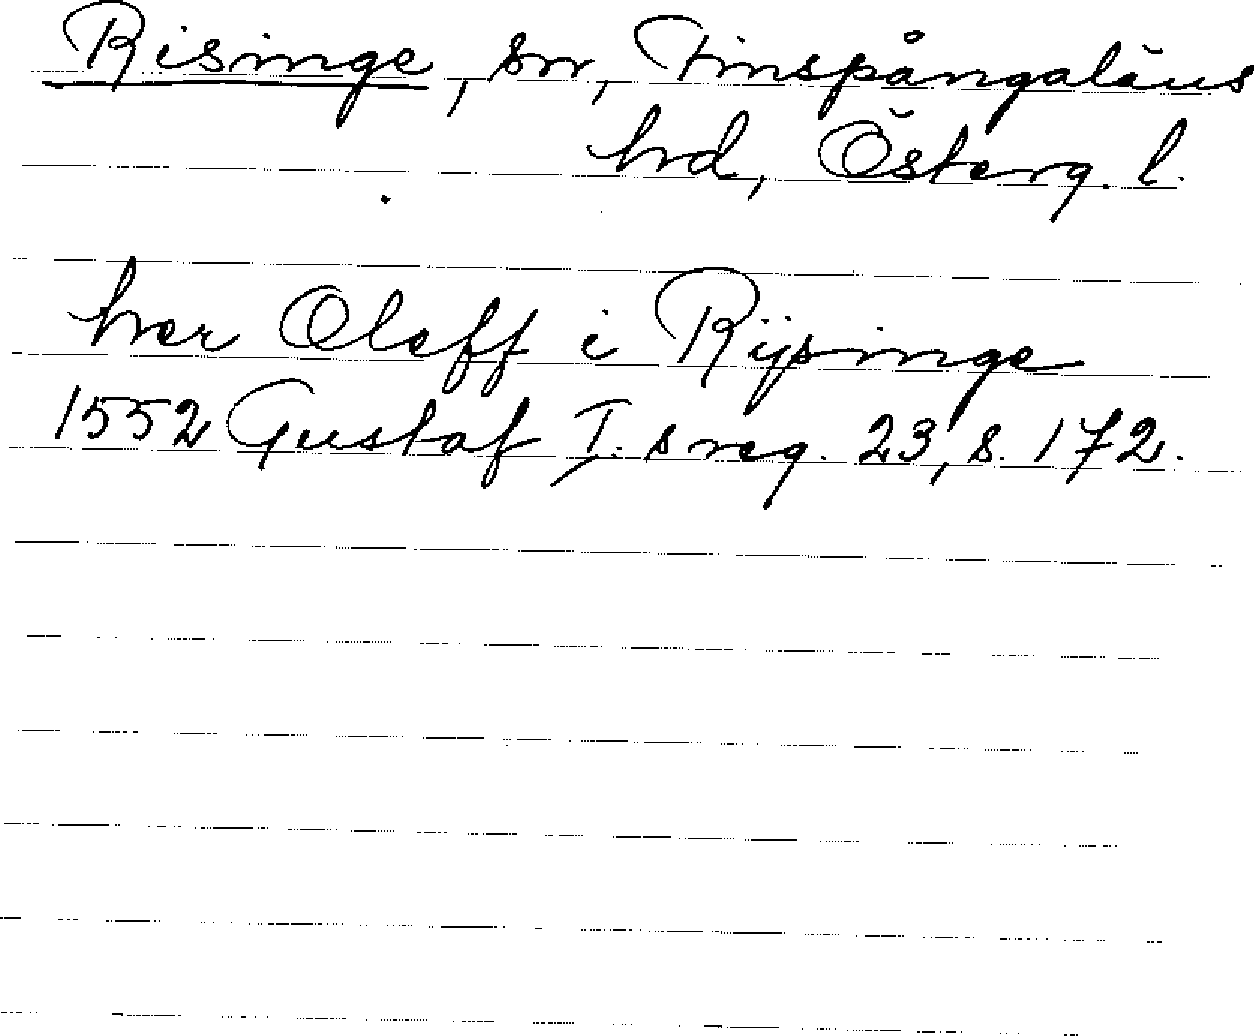 Risinge, sn, Finspångaläns
hd, Österg. l.
her Oleff i Rijsinge
1552 Gustaf I. s reg. 23, s. 172.